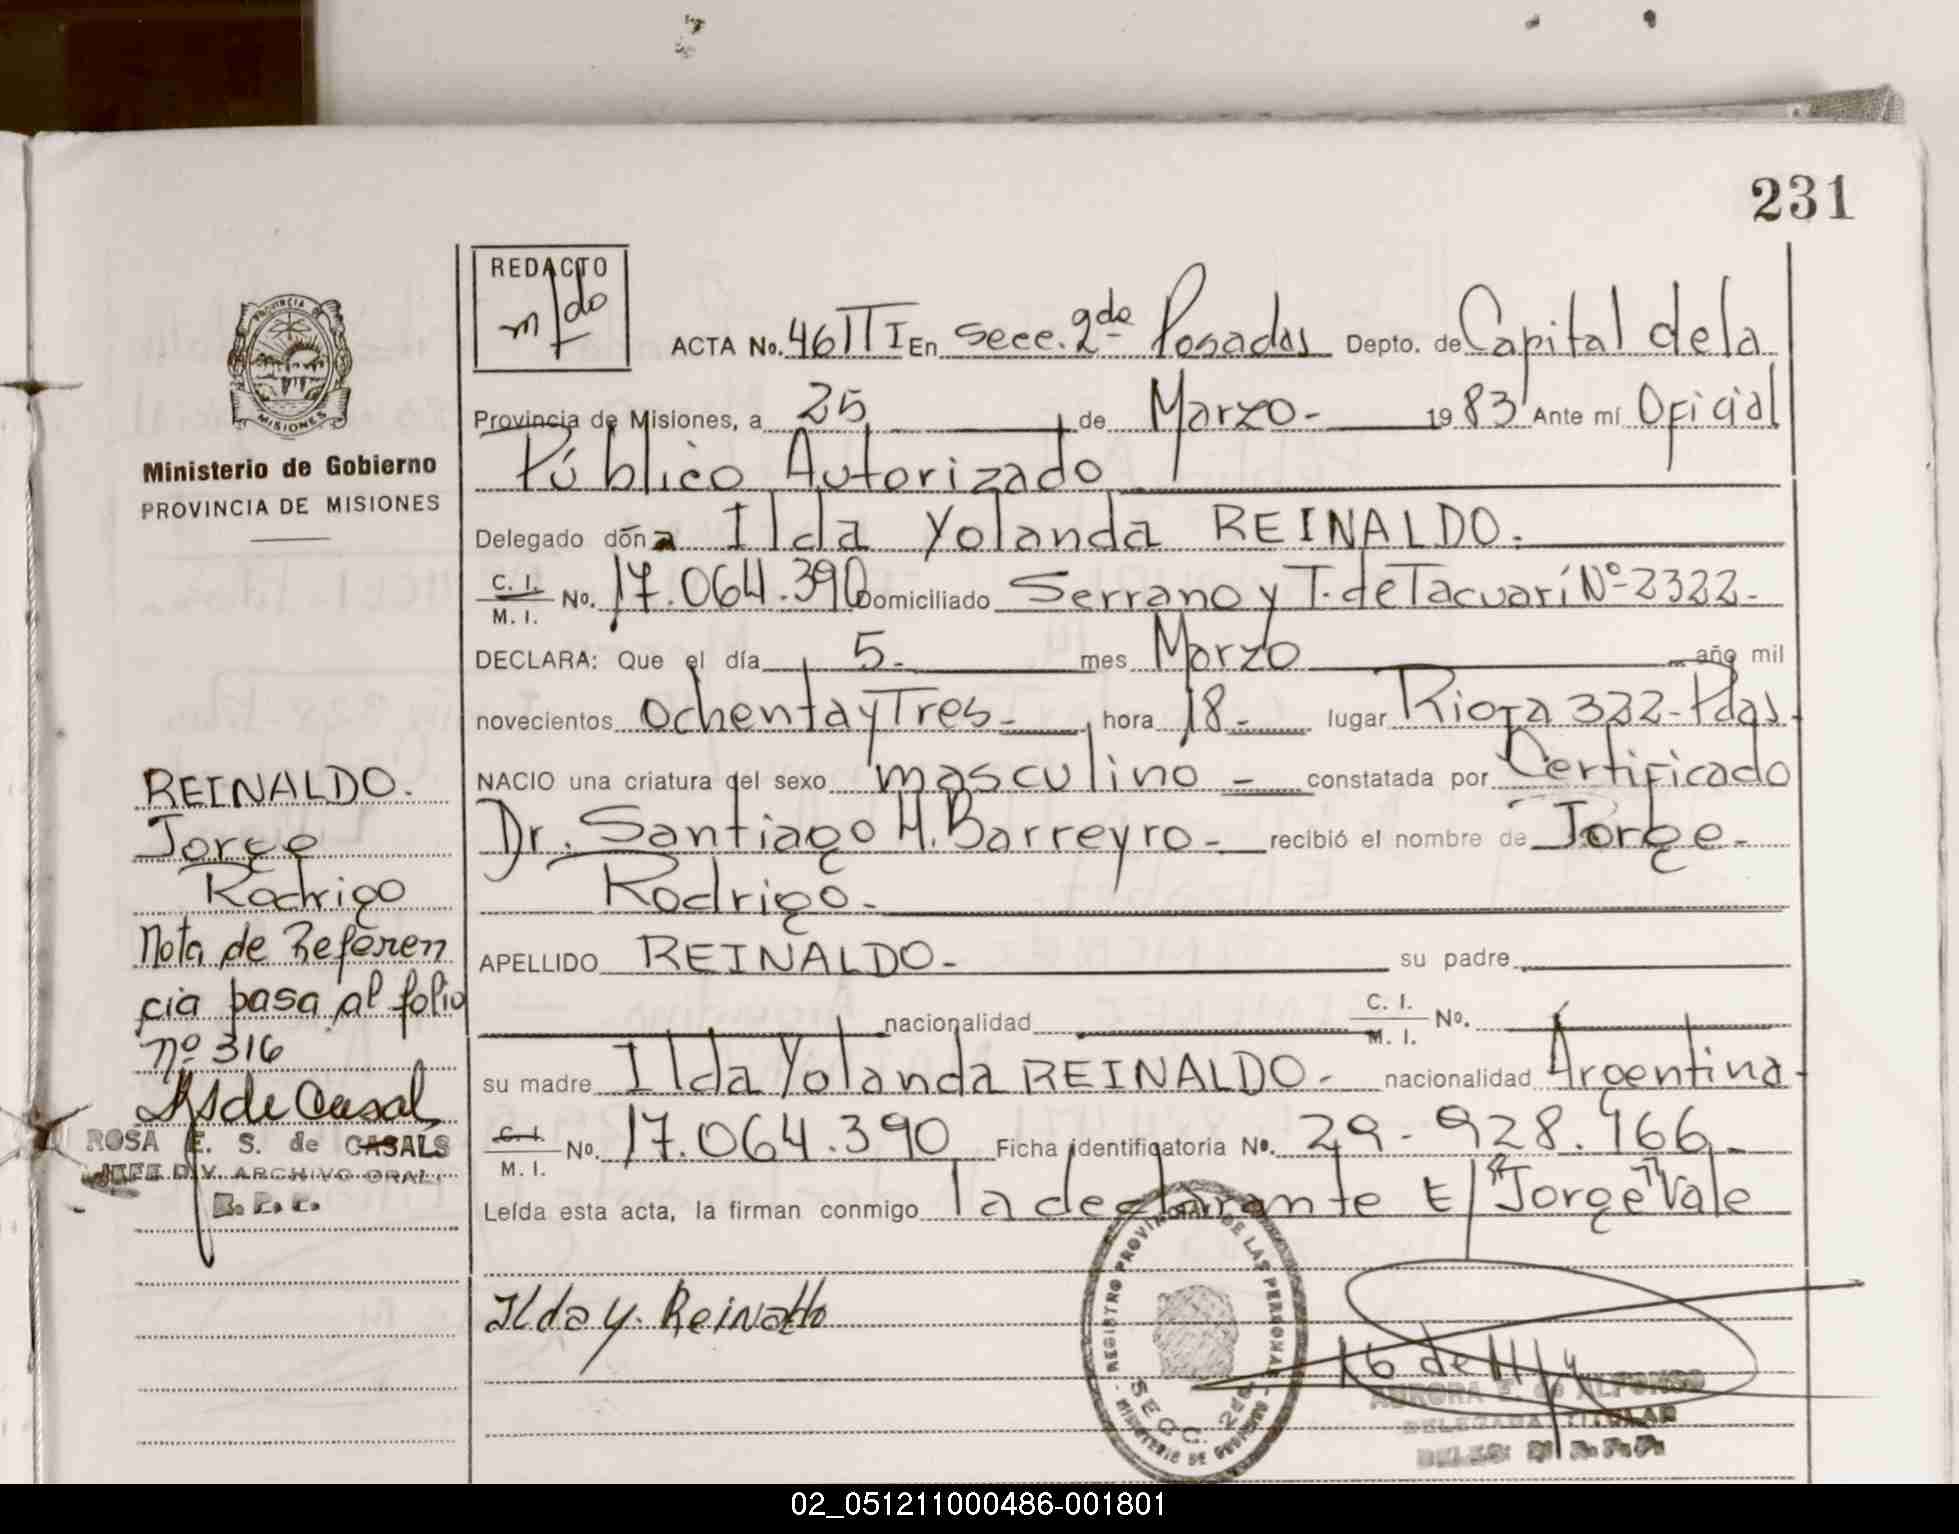 231
REDACTO
ACTA No. 461 TI En Secc. 2da Posadas Depto. de Capital dela
Provincia de Misiones, a 25 de Marzo- 1983 Ante mí Oficial
Público Autorizado
Delegado doña Ilda Yolanda REINALDO.
C. I.
M. I. No. 17.064.390 Domiciliado Serrano y T. de Tacuarí Nº-2322-
DECLARA: Que el día 5- mes Marzo año mil
novecientos ochenta y Tres- hora 18- lugar Rioja 322-Pdas.
NACIO una criatura del sexo masculino - constatada por Certificado
Dr. Santiago H. Barreyro- recibió el nombre de Jorge-
Rodrigo-
APELLIDO REINALDO- su padre
nacionalidad C. I.
M. I. No.
su madre Ilda Yolanda REINALDO- nacionalidad Argentina-
C. I.
M. I. No. 17.064.390 Ficha identificatoria No. 29-928.966-
Leída esta acta, la firman conmigo la declarante E/ "Jorge" Vale
Ilda Y. Reinaldo
PROVINCIA DE
MISIONES
Ministerio de Gobierno
PROVINCIA DE MISIONES
REINALDO.
Jorge
Rodrigo
Nota de Referen
cia pasa al folio
nº 316
ROSA E. S. de CASALS
JEFE DIV. ARCHIVO GRAL.
R. P. P.
REGISTRO PROVINCIAL DE LAS PERSONAS
SECC. 2da
MINISTERIO DE GOBIERNO
AURORA E. de ALFONSO
DELEGADA TITULAR
02_051211000486-001801